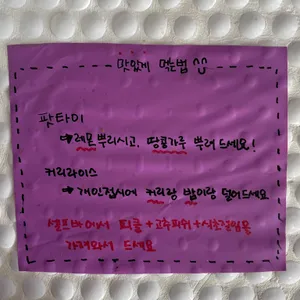 맛있게 먹는법 ^^
팟타이
→레몬뿌리시고, 땅콩가루 뿌려드세요!
커리라이스
→개인접시에 커리랑 밥이랑 덜어드세요
셀프바에서 피클+고추피워+식초절임을
가져와서 드세요